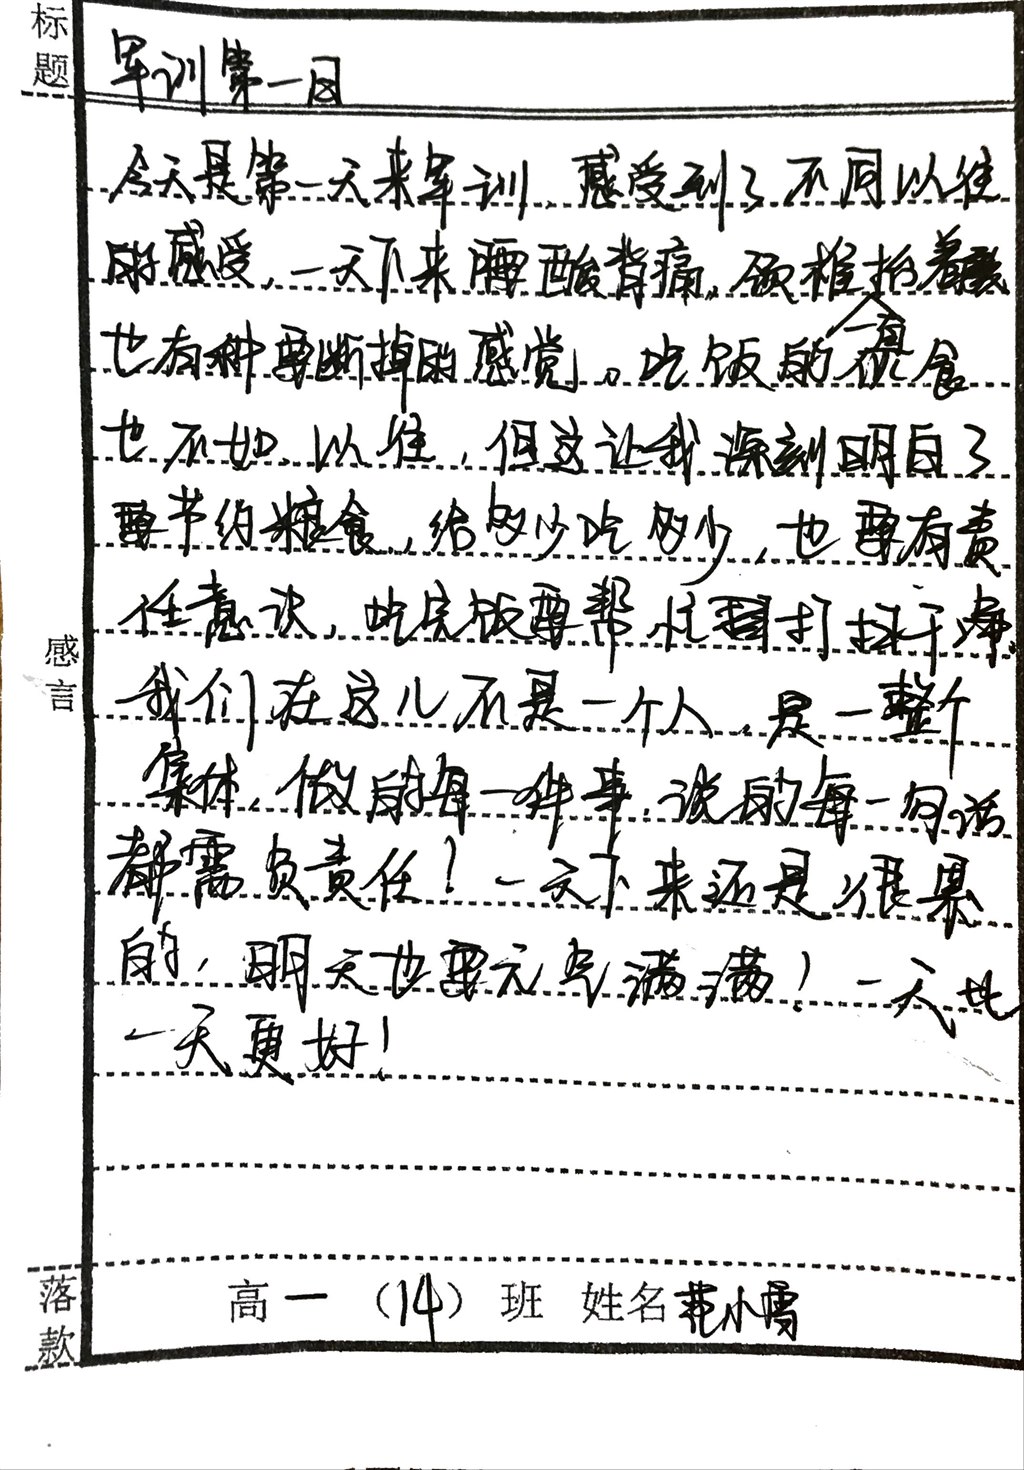 标题
军训第一日
今天是第一天来军训,感受到了不同以往
的感受,一天下来腰酸背痛,颈椎抬着
也有种要断掉的感觉。吃饭的食
也不如以往,但这让我深刻明白了
要节约粮食,给多少吃多少,也要有责
任意识,吃完饭要帮忙打扫干净。
我们在这儿不是一个人,是一整个
集体,做的每一件事,说的每一句话
都需负责任!一天下来还是很累
的,明天也要元气满满!一天比
一天更好!
感言
落款
高一(14)班 姓名 范小雪